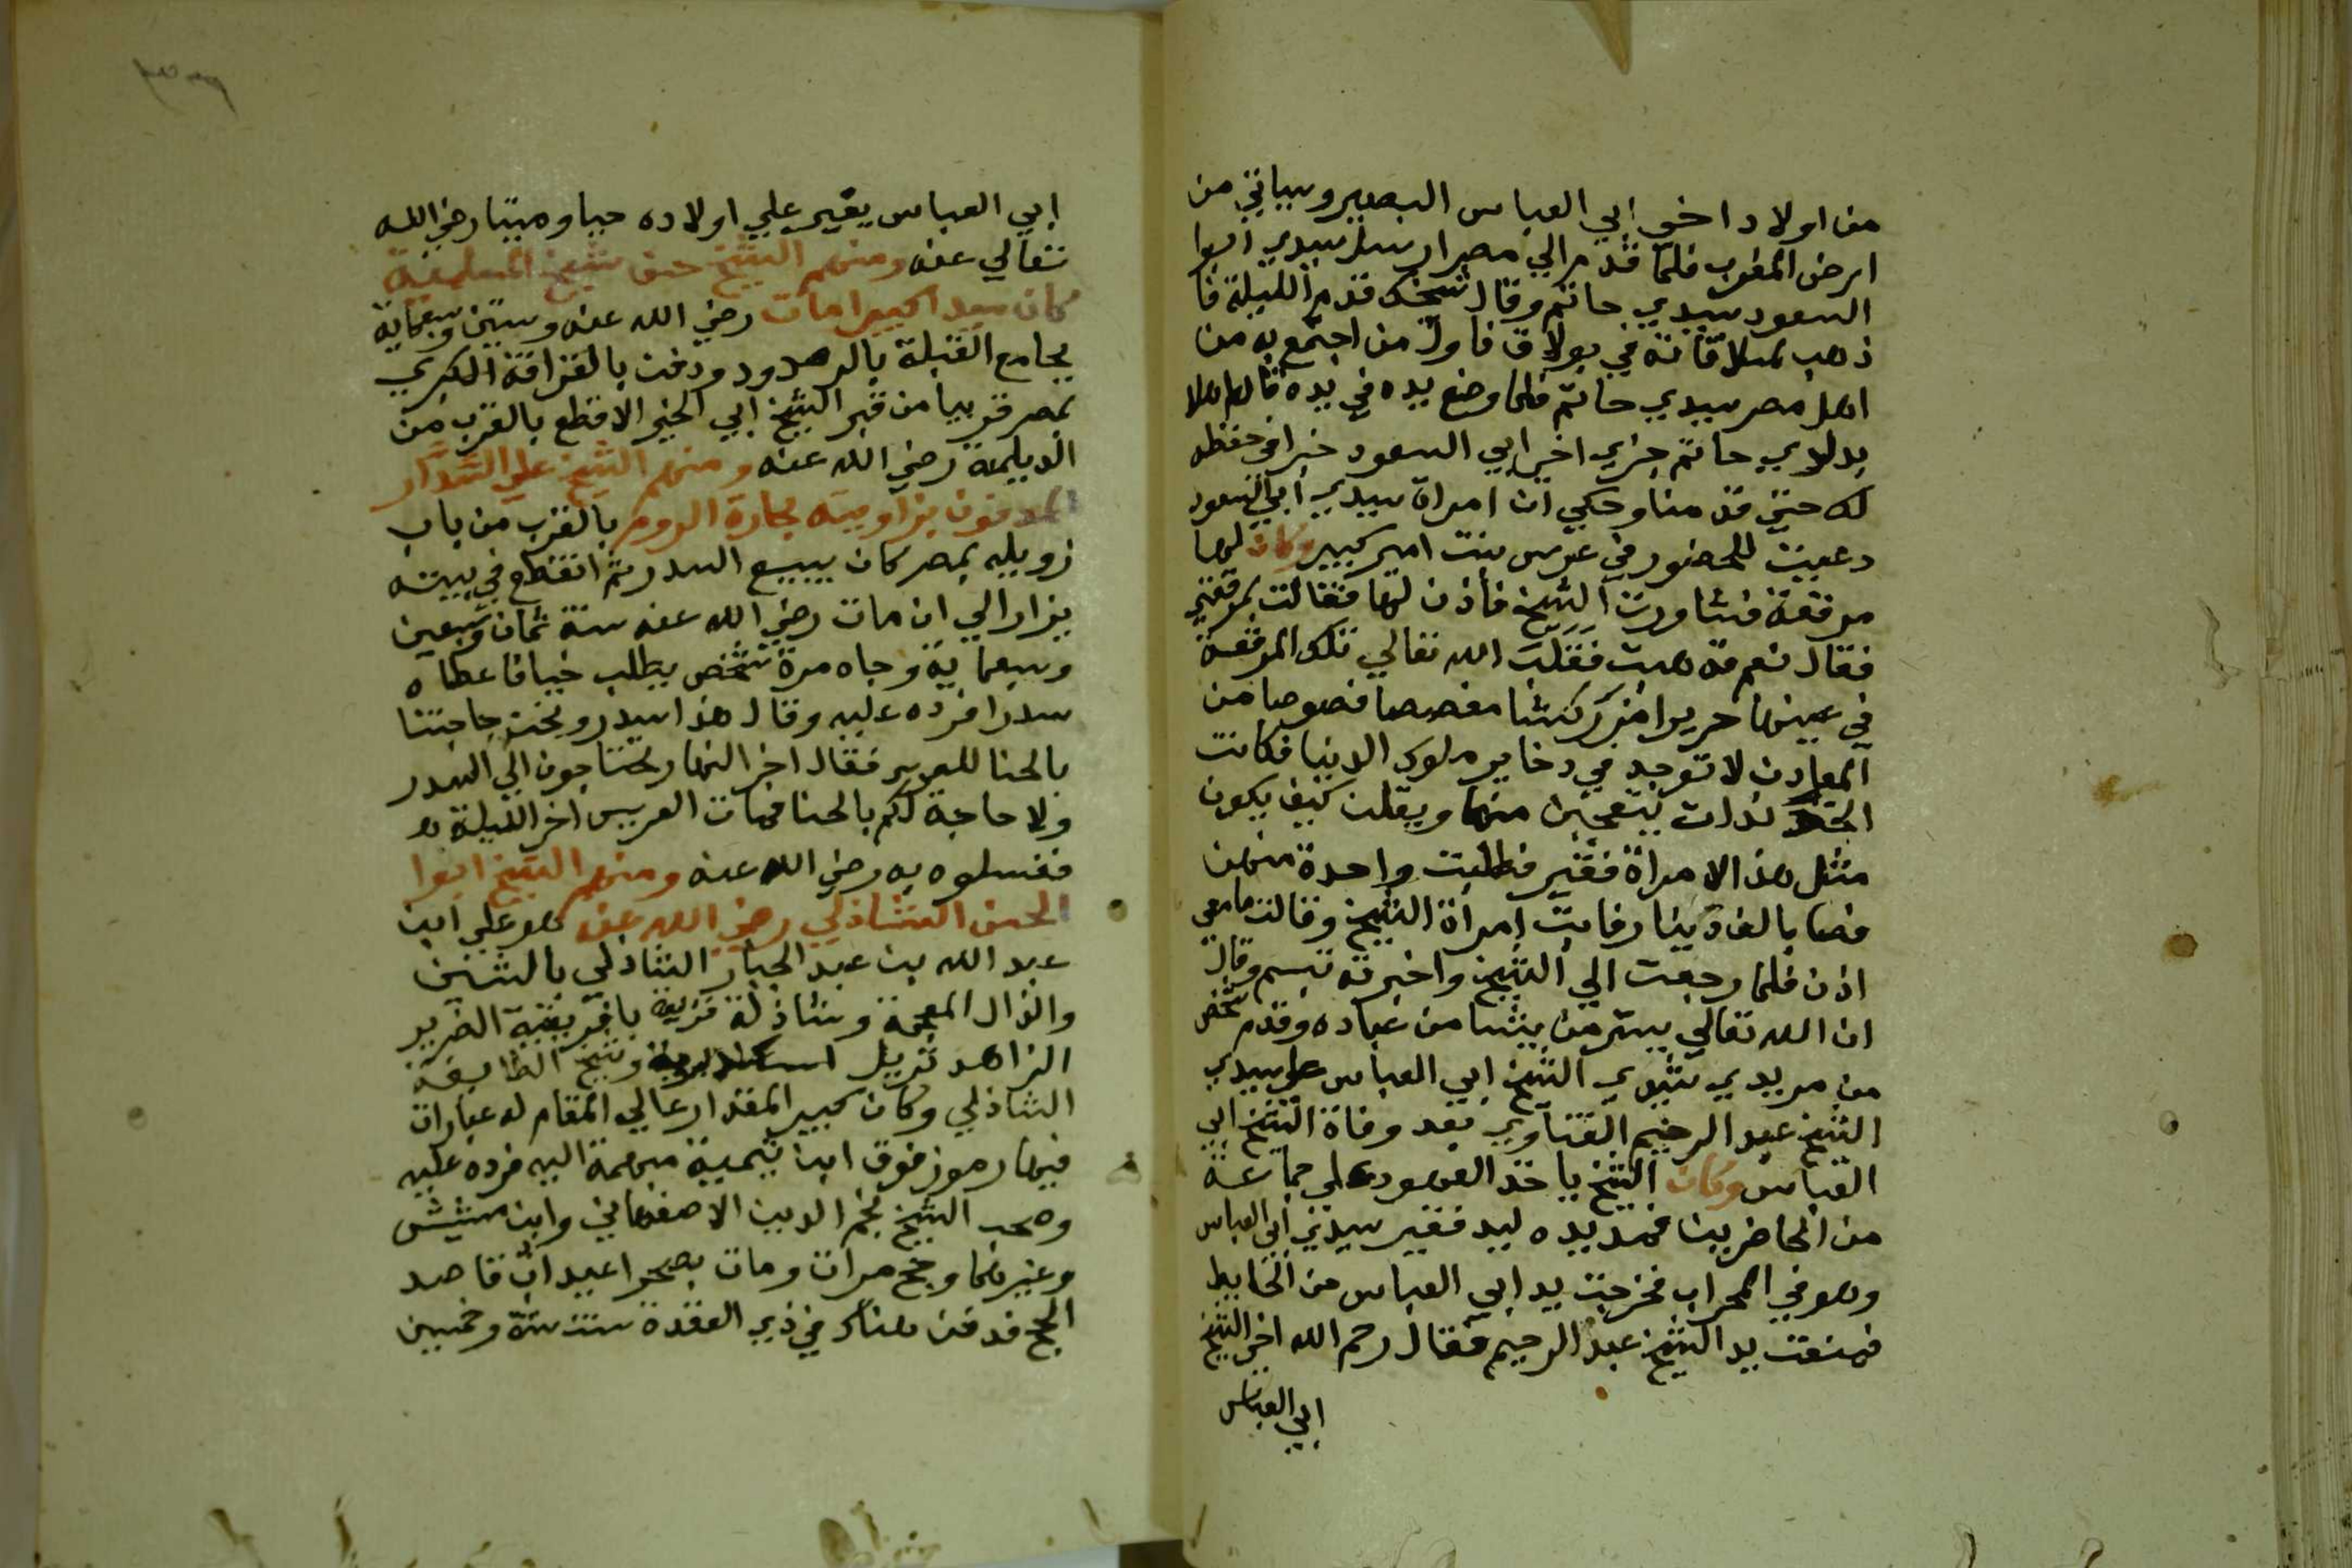 من اولاد اخي ابي العباس البصير وسياتي من
ارض المغرب فلما قدم الي مصر ارسل سيدي ابوا
السعود سيدي حاتم وقال شيخك قدم الليلة فا
ذهب لملاقاته في بولاق فاول من اجتمع به من
اهل مصر سيدي حاتم فلما وضع يده في يده قال اهلا
بولدي حاتم جزي اخي ابي السعود خيرا في حفظه
لك حتي قدمنا وحكي ان امراة سيدي ابي السعود
دعيت للحضور في عرس بنت امير كبير وكان لها
مرقعة فشاورت الشيخ فأذن لها فقالت بمرقعتي
فقال نعم فذهبت فقلب الله تعالي تلك المرقعة
في عينها حريرا مزركشا مفصصا فصوصا من
المعادن لا توجد في دخاير ملوك الدنيا فكانت
الخوندات يتعجبن منها ويقلن كيف يكون
مثل هذ الامراة فقير فطلبت واحدة منهن
فصا بالف دينار فابت امراة الشيخ وقالت ما معي
اذن فلما رجعت الي الشيخ واخبرته تبسم وقال
ان الله تعالي يستر من يشا من عباده وقدم شخص
من مريدي سيدي الشيخ ابي العباس علي سيدي
الشيخ عبد الرحيم القناوي بعد وفاة الشيخ ابي
العباس وكان الشيخ ياخذ العهود علي جماعة
من الحاضرين فمد يده ليد فقير سيدي ابي العباس
وهو في المحراب فخرجت يد ابي العباس من الحايط
فمنعت يد الشيخ عبد الرحيم فقال رحم الله اخي الشيخ
ابي العباس
ابي العباس يغير علي اولاده حيا وميتا رضي الله
تعالي عنه ومنهم الشيخ حسن شيخ المسلمية
كان سيد اكبيرا مات رضي الله عنه وستين وسبعماية
بجامع الفيلة بالرصد ودفن بالقرافة الكبري
بمصر قريبا من قبر الشيخ ابي الخير الاقطع بالقرب من
الديلمية رضي الله عنه ومنهم الشيخ علي السدار
المدفون بزاويته بحارة الروم بالقرب من باب
زويله بمصر كان يبيع السدر ثم انقطع في بيته
يزار الي ان مات رضي الله عنه سنة ثمان وسبعين
وسبعماية وجاه مرة شخص يطلب حنا فاعطاه
سدرا فرده عليه وقال هذا سدر ونحن حاجتنا
بالحنا للعريس فقال اخر النهار تحتاجون الي السدر
ولا حاجة لكم بالحنا فمات العريس اخر الليلة
فغسلوه به رضي الله عنه ومنهم الشيخ ابوا
الحسن الشاذلي رضي الله عنه هو علي ابن
عبد الله بن عبد الجبار الشاذلي بالشين
والذال المعجمة وشاذلة قرية بافريقية الضرير
الزاهد نزيل اسكندرية وشيخ الطايفة
الشاذلي وكان كبير المقدار عالي المقام له عبارات
فيها رموز فوق ابن تيمية سهمه اليه فرده عليه
وصحب الشيخ نجم الدين الاصفهاني وابن مشيش
وغيرهما وحج مرات ومات بصحرا عيداب قاصد
الحج فدفن هناك في ذي القعدة سنة ستة وخمسين